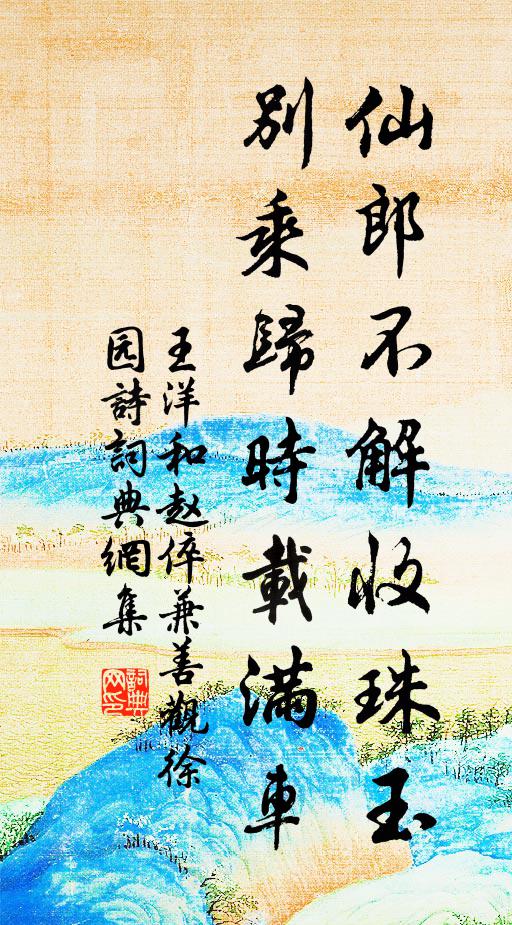 仙郎不解收珠玉
別乘歸時載滿車
王洋和赵倅兼善觀徐
园詩詞典網集
詞典
网印